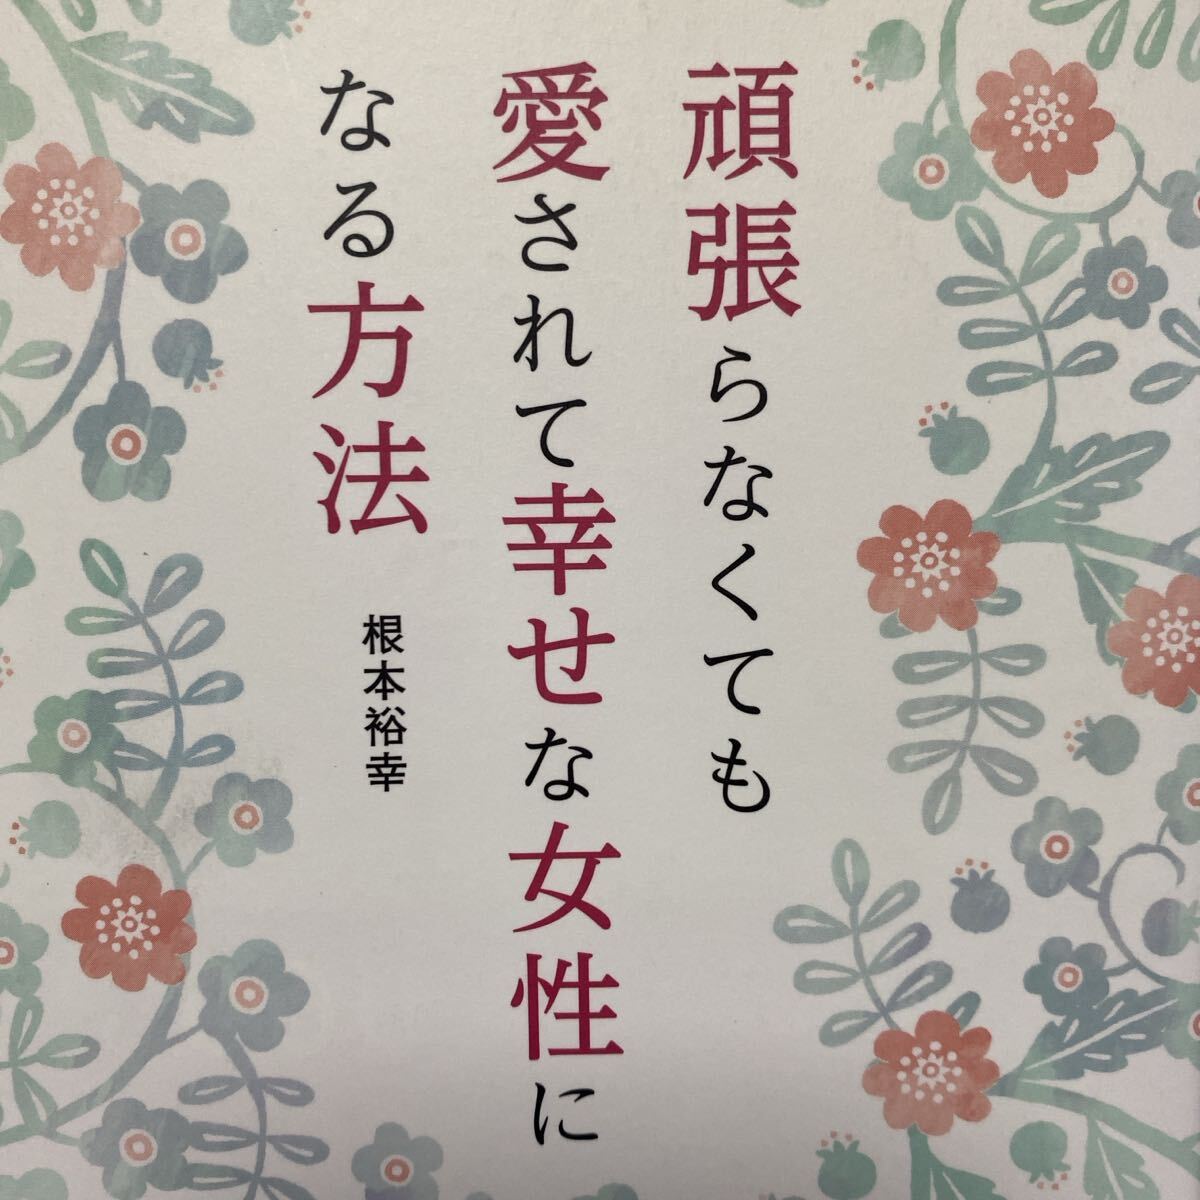 頑張らなくても
愛されて幸せな女性に
なる方法
根本裕幸